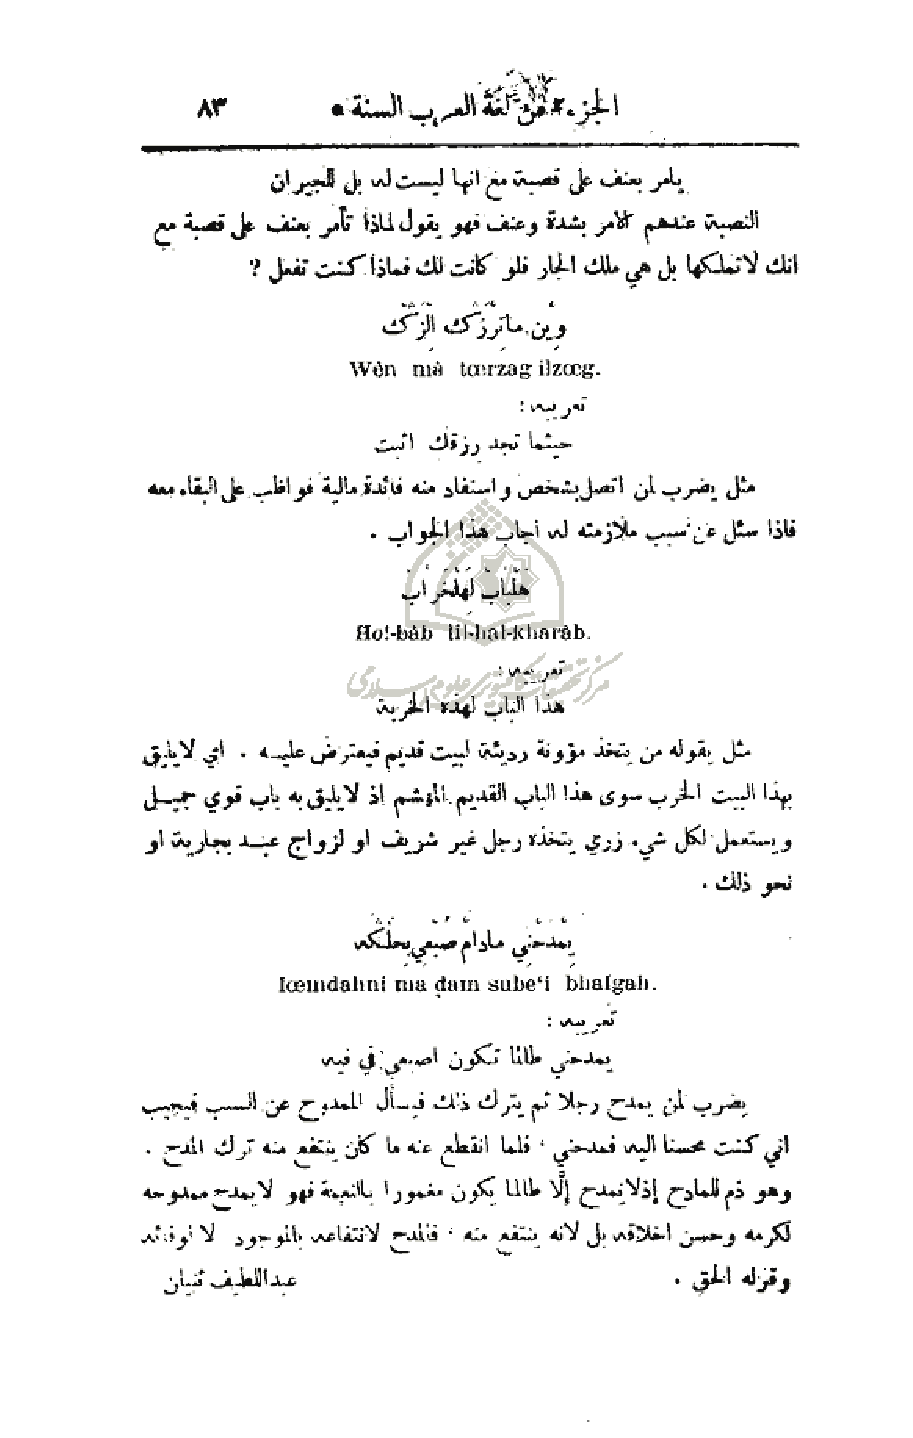 الجزء ٢ من لغة العرب السنة ٥ ٨٣
يامر بعنف على قصبة مع انها ليست له بل للجيران
النصبة عندهم الامر بشدة وعنف فهو يقول لماذا تأمر بعنف على قصبة مع
انك لا تملكها بل هي ملك الجار فلو كانت لك فماذا كنت تفعل ?
وَيْن ما تِرْزَگ الْزَگ
Wên mâ tœrzag ilzœg.
تعريبه :
حيثما تجد رزقك اثبت
مثل يضرب لمن اتصل بشخص واستفاد منه فائدة مالية فواظب على البقاء معه
فاذا سئل عن سبب ملازمته له أجاب هذا الجواب .
هَلْبَابْ لِهَلْخَرَابْ
Hal-bâb lil-hal-kharâb.
تعريبه :
هذا الباب لهذه الخربة
مثل يقوله من يتخذ مؤونة رديئة لبيت قديم فيعترض عليه . اي لا يليق
بهذا البيت الخرب سوى هذا الباب القديم المهشم اذ لا يليق به باب قوي جميل
ويستعمل لكل شيء زري يتخذه رجل غير شريف او لزواج عبد بجارية او
نحو ذلك .
يِمْدَحْنِي مادامْ صُبْعِي بِحَلْگه
Iœmdahni ma dam sube‘i bhalgah.
تعريبه :
يمدحني طالما تكون اصبعي في فيه
يضرب لمن يمدح رجلا ثم يترك ذلك فيسأل الممدوح عن السبب فيجيب
اني كنت محسنا اليه فمدحني ، فلما انقطع عنه ما كان ينتفع منه ترك المدح .
وهو ذم للمادح إذ لا يمدح إلّا طالما يكون مغمورا بالنعمة فهو لا يمدح ممدوحه
لكرمه وحسن اخلاقه بل لانه ينتفع منه ، فالمدح لانتفاعه بالموجود لا لوفائه
وقوله الحق . عبد اللطيف ثنيان
مركز تحقيقات كامپيوترى علوم اسلامى